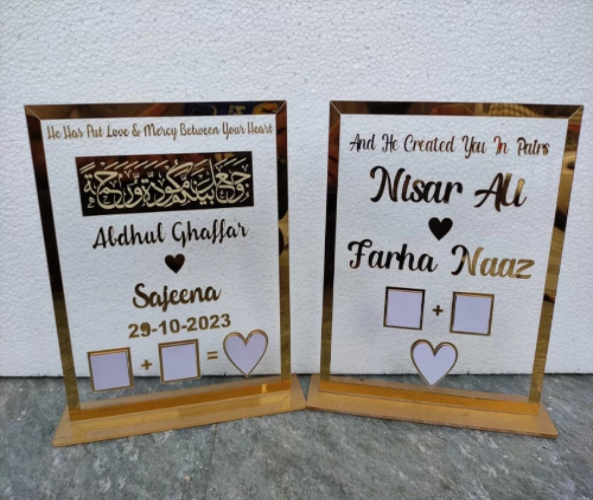 He Has Put Love & Mercy Between Your Heart
وَجَعَلَ بَيْنَكُم مَّوَدَّةً وَرَحْمَةً
Abdhul Ghaffar
Sajeena
29-10-2023
+ =
And He Created You In Pairs
Nisar Ali
Farha Naaz
+